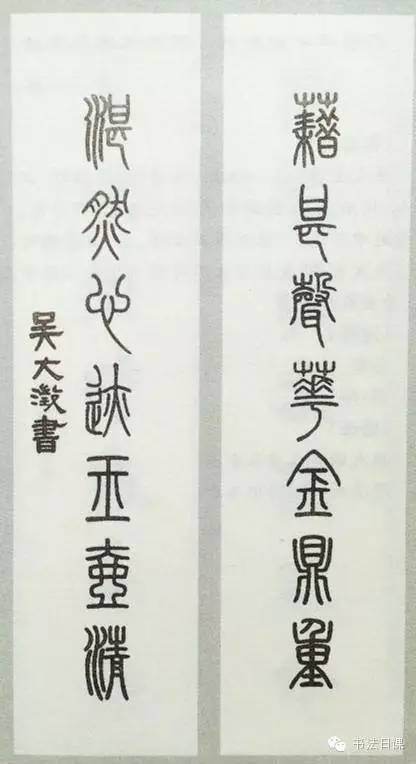 藉甚聲華金鼎重
湛然心迹玉壺清
吳大澂書
书法日课